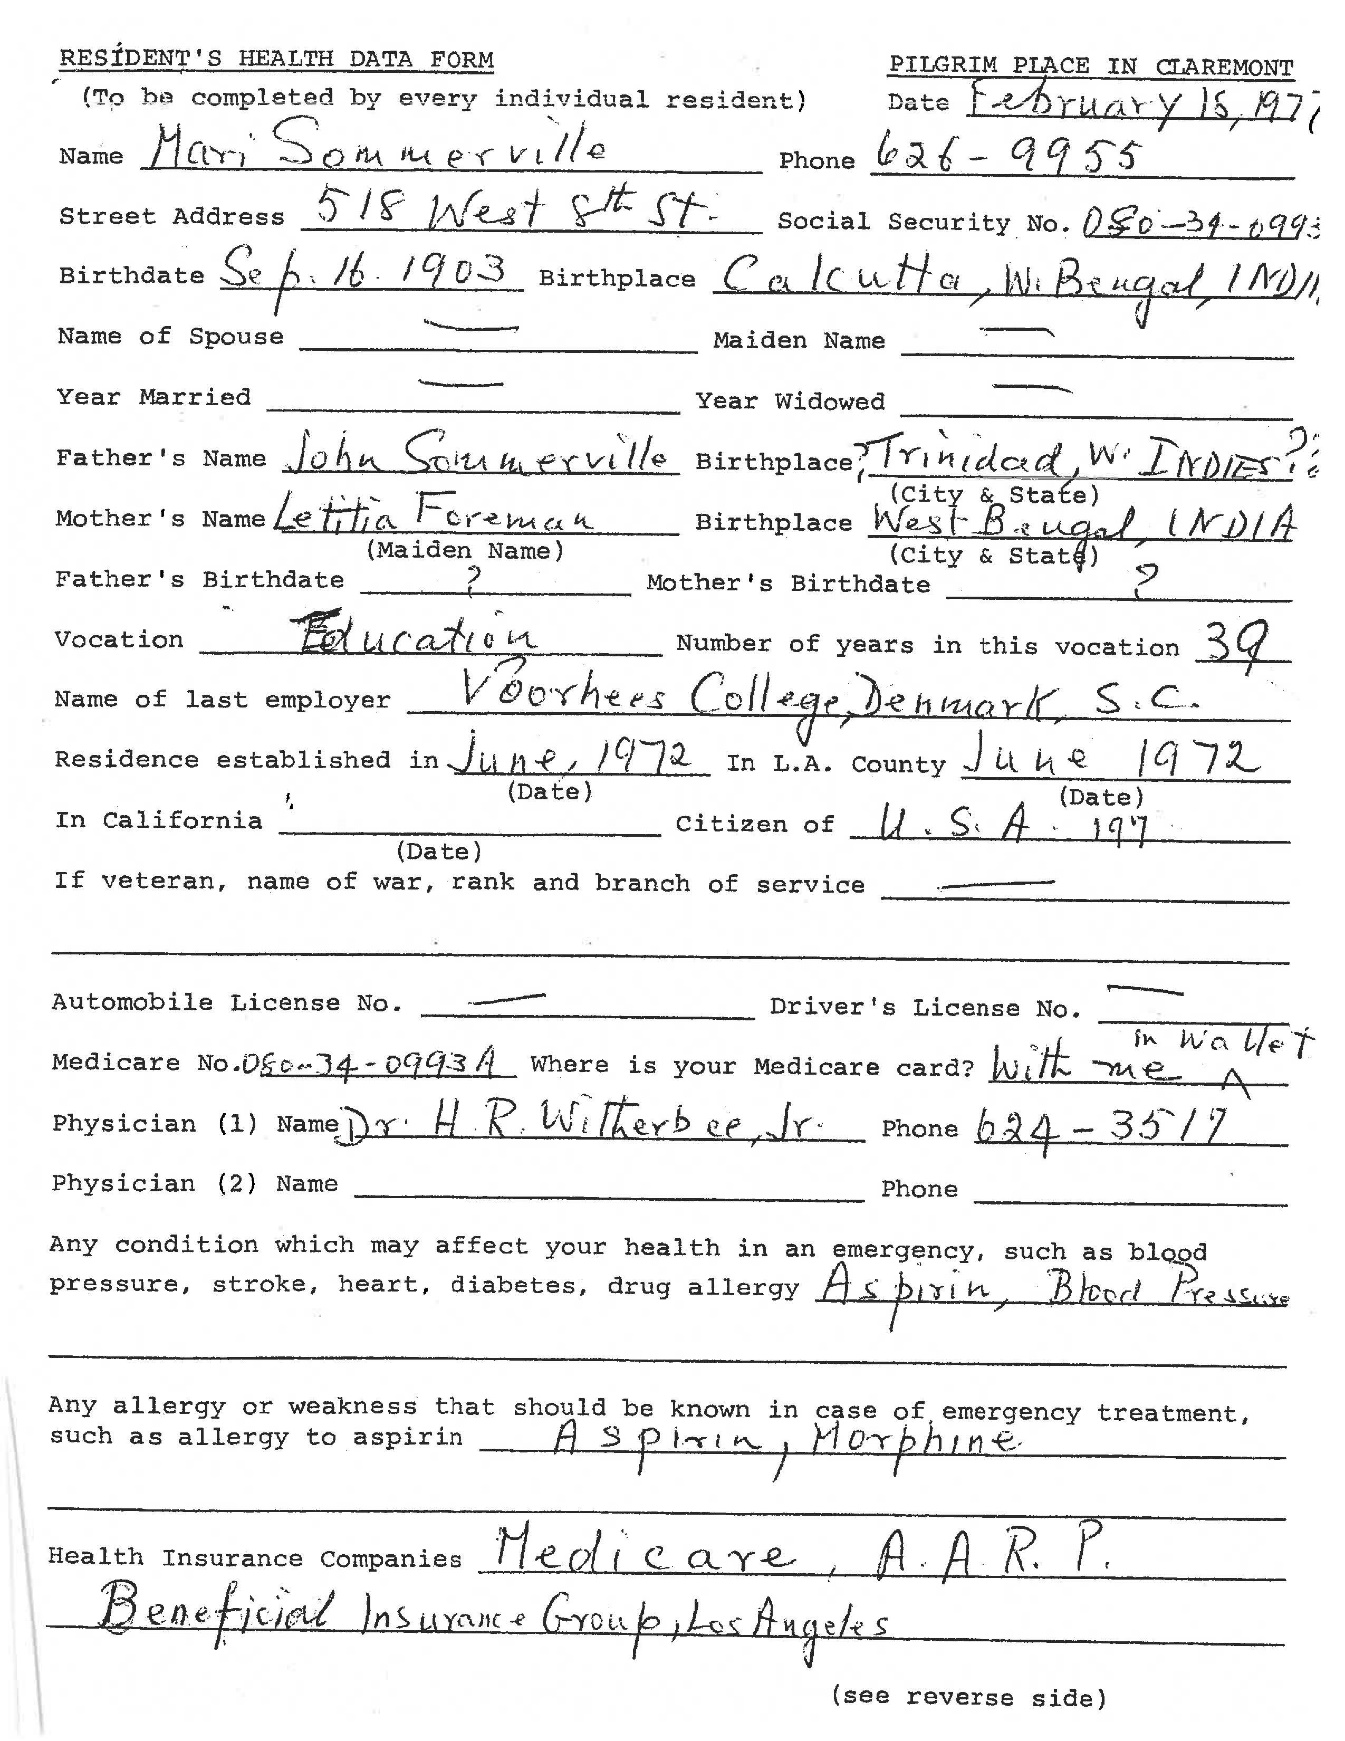 RESIDENT'S HEALTH DATA FORM PILGRIM PLACE IN CLAREMONT
(To be completed by every individual resident) Date February 15, 1977
Name Mari Sommerville Phone 626-9955
Street Address 518 West 8th St. Social Security No. 080-34-0993
Birthdate Sep. 16. 1903 Birthplace Calcutta, W. Bengal, INDIA
Name of Spouse — Maiden Name —
Year Married — Year Widowed —
Father's Name John Sommerville Birthplace ? Trinidad, W. INDIES ??
(City & State)
Mother's Name Letitia Foreman Birthplace West Bengal, INDIA
(Maiden Name) (City & State)
Father's Birthdate ? Mother's Birthdate ?
Vocation Education Number of years in this vocation 39
Name of last employer Voorhees College, Denmark, S.C.
Residence established in June, 1972 In L.A. County June 1972
(Date) (Date)
In California Citizen of U.S.A. 197
(Date)
If veteran, name of war, rank and branch of service —
Automobile License No. — Driver's License No. —
in Wallet
Medicare No. 080-34-0993A Where is your Medicare card? With me ^
Physician (1) Name Dr. H.R. Witherbee, Jr. Phone 624-3517
Physician (2) Name Phone
Any condition which may affect your health in an emergency, such as blood
pressure, stroke, heart, diabetes, drug allergy Aspirin, Blood Pressure
Any allergy or weakness that should be known in case of emergency treatment,
such as allergy to aspirin Aspirin, Morphine
Health Insurance Companies Medicare, A.A.R.P.
Beneficial Insurance Group, Los Angeles
(see reverse side)